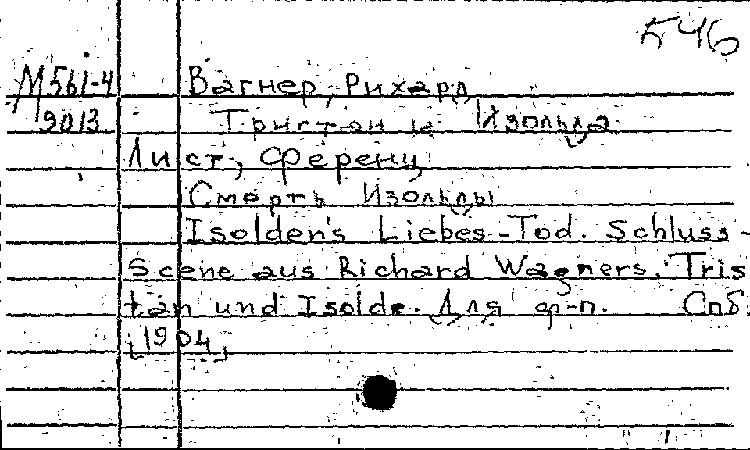 546
М561-4 Вагнер, Рихард
9013 Тристан и Изольда
Лист, Ференц
Смерть Изольды
Isolden's Liebes-Tod. Schluss-
Scene aus Richard Wagners. Tris
tan und Isolde. Для ф-п. Спб.
[1904]